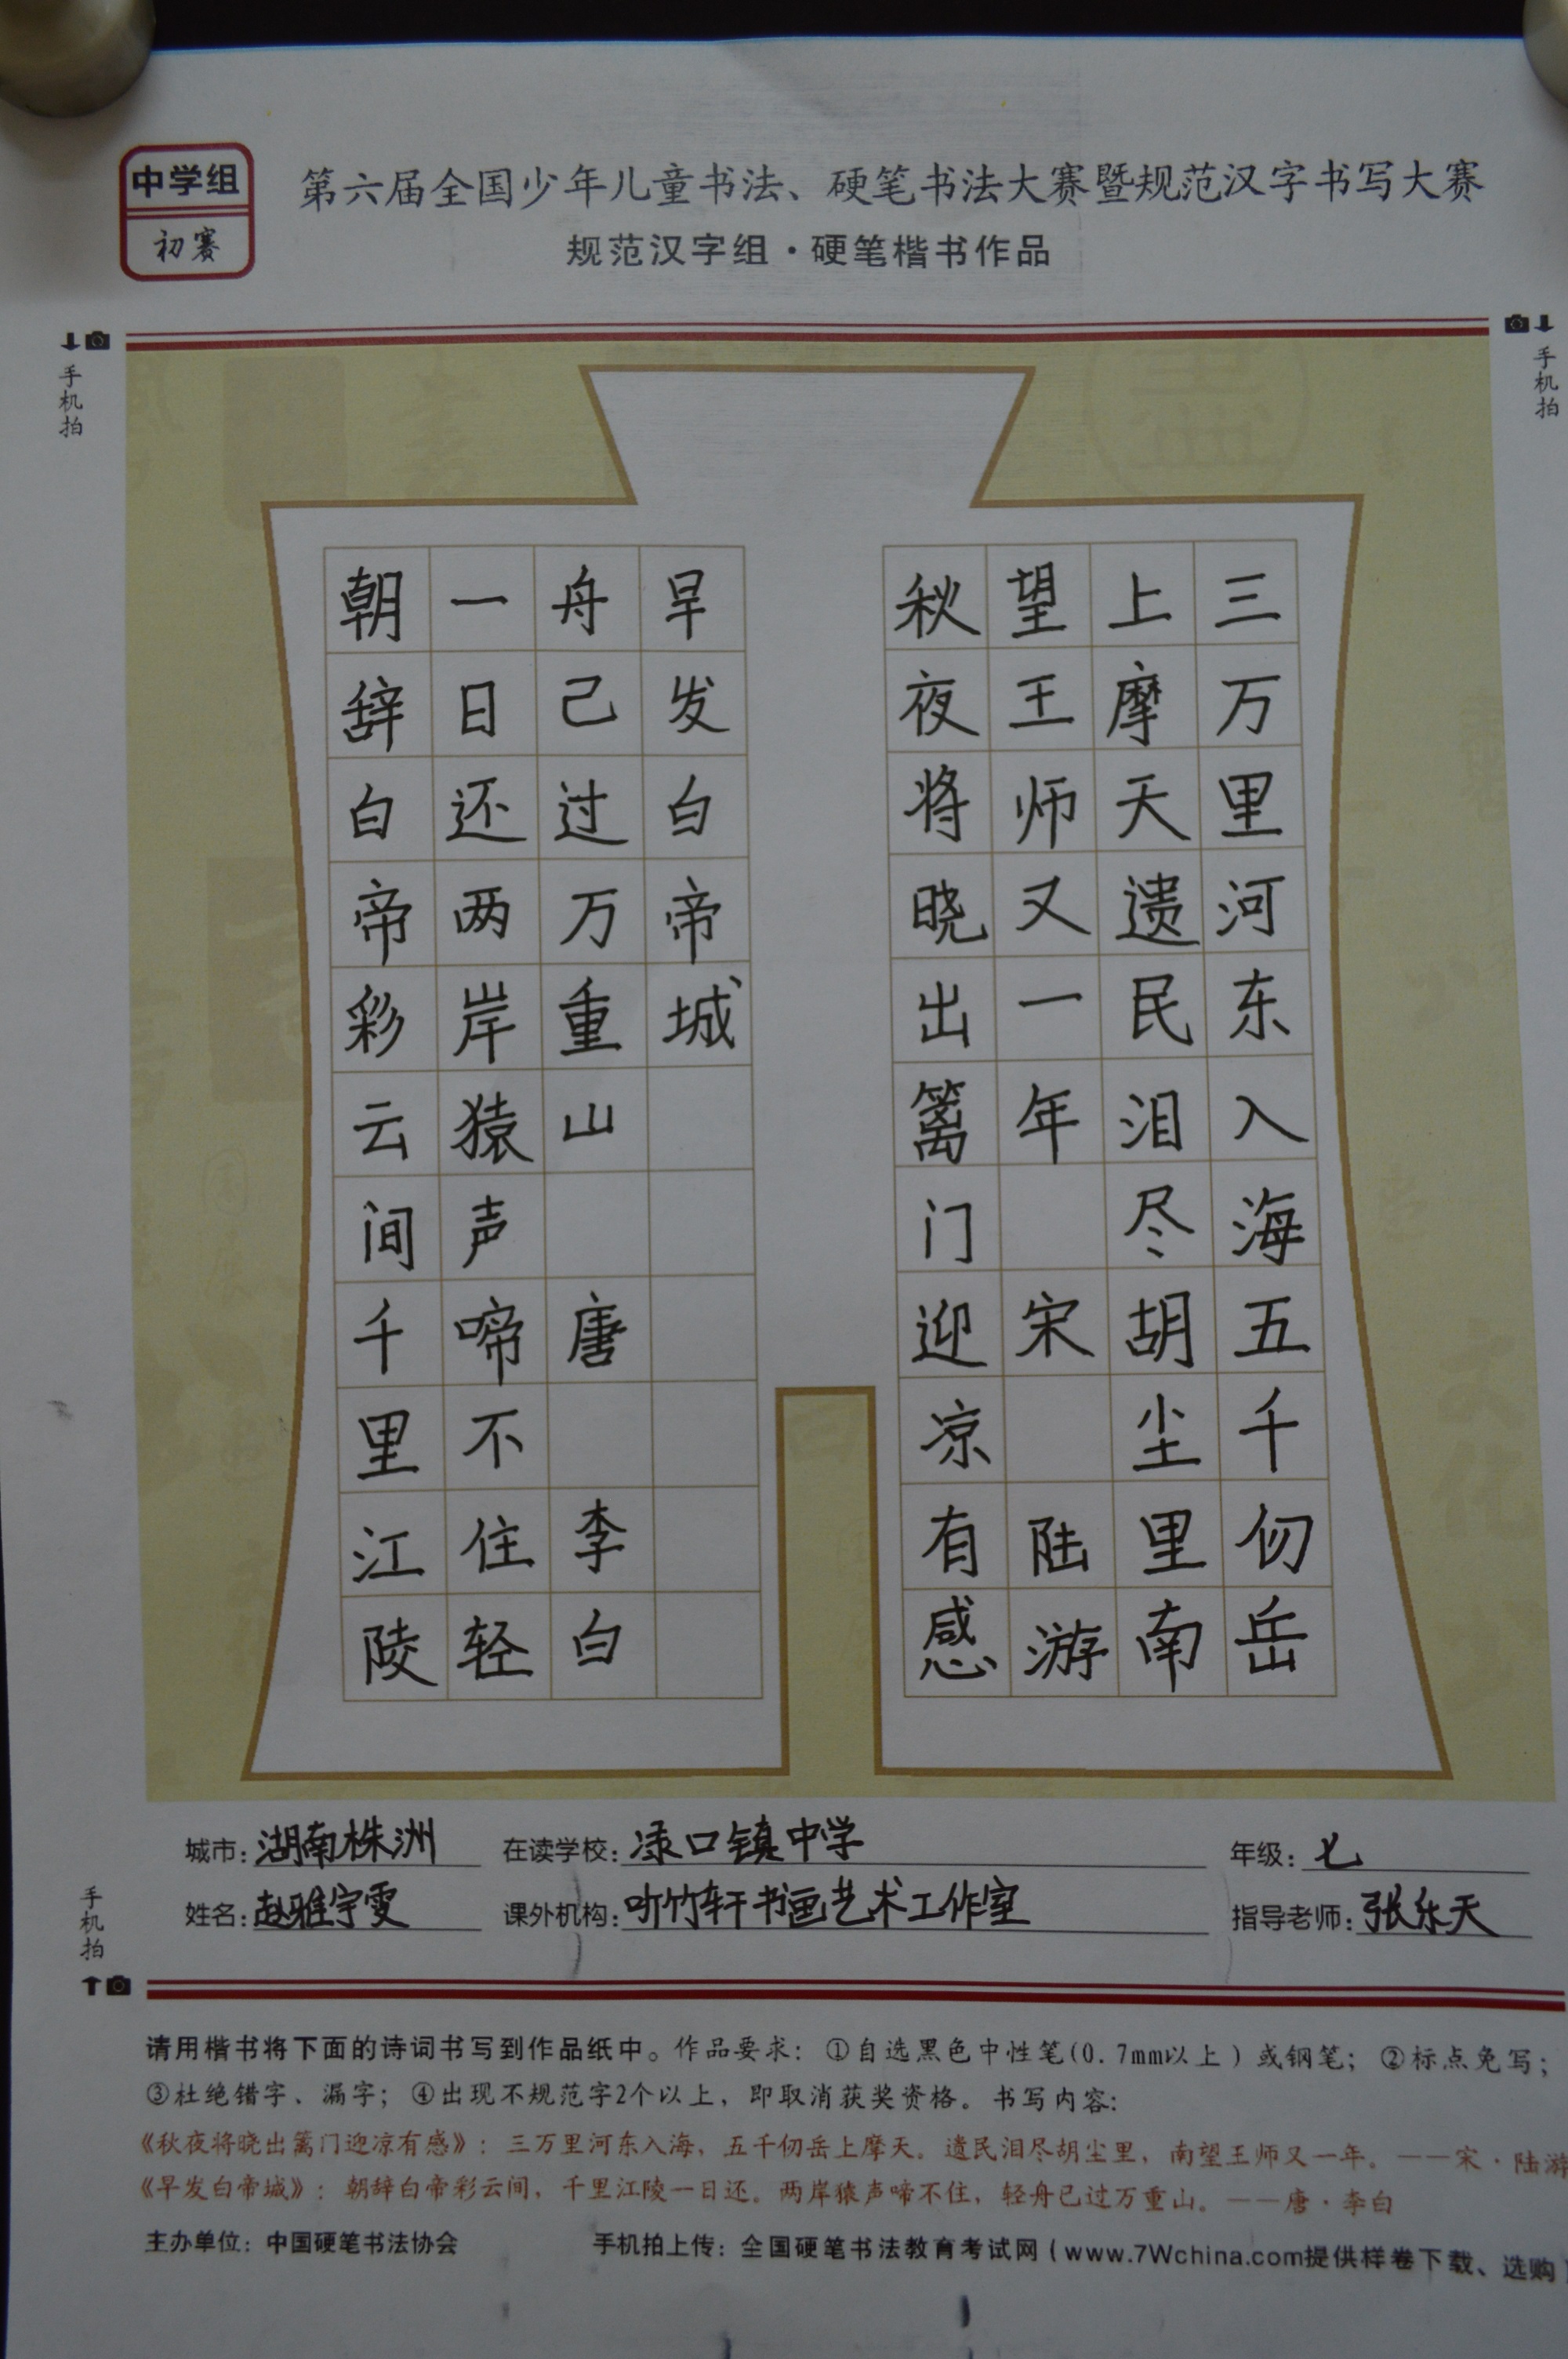 中学组
初赛
第六届全国少年儿童书法、硬笔书法大赛暨规范汉字书写大赛
规范汉字组·硬笔楷书作品
手机拍
手机拍
三万里河东入海五千仞岳
上摩天遗民泪尽胡尘里南
望王师又一年 宋 陆游
秋夜将晓出篱门迎凉有感
朝辞白帝彩云间千里江陵
一日还两岸猿声啼不住轻
舟己过万重山 唐 李白
早发白帝城
城市:湖南株洲 在读学校:渌口镇中学 年级:七
姓名:赵雅宇雯 课外机构:听竹轩书画艺术工作室 指导老师:张乐天
手机拍
请用楷书将下面的诗词书写到作品纸中。作品要求：①自选黑色中性笔(0.7mm以上)或钢笔；②标点免写；
③杜绝错字、漏字；④出现不规范字2个以上，即取消获奖资格。书写内容:
《秋夜将晓出篱门迎凉有感》：三万里河东入海，五千仞岳上摩天。遗民泪尽胡尘里，南望王师又一年。——宋·陆游
《早发白帝城》：朝辞白帝彩云间，千里江陵一日还。两岸猿声啼不住，轻舟已过万重山。——唐·李白
主办单位：中国硬笔书法协会 手机拍上传：全国硬笔书法教育考试网(www.7Wchina.com提供样卷下载、选购)